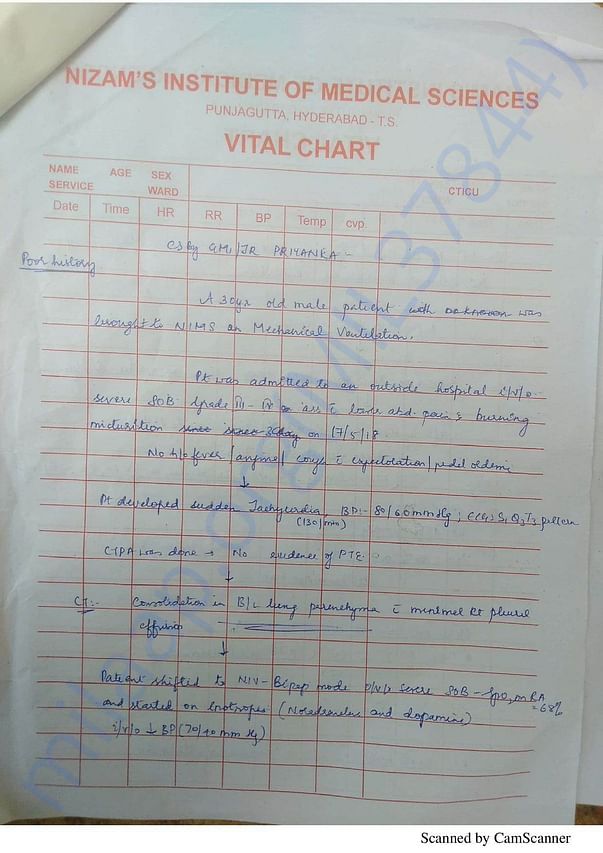 NIZAM'S INSTITUTE OF MEDICAL SCIENCES
PUNJAGUTTA, HYDERABAD - T.S.
VITAL CHART
NAME AGE SEX
SERVICE WARD CTICU
Date Time HR RR BP Temp cvp.
CS by GM/JR PRIYANKA -
Poor history
A 30yr old male patient with was
brought to NIMS on Mechanical Ventilation.
Pt was admitted to an outside hospital i/v/o
severe SOB Grade III - IV ass c lower abd. pain & burning
micturition on 17/5/18.
No h/o fever / / cough c expectoration / pedal oedema
↓
Pt developed sudden Tachycardia, BP:- 80/60mmHg; ECG: S1 Q3 T3 pattern
(130/min)
CTPA was done → No evidence of PTE.
↓
CT:- Consolidation in B/L lung parenchyma c minimal Rt pleural
↓
Patient shifted to NIV - Bipap mode i/v/o severe SOB - SpO2 on RA
= 68%
and started on Inotropes (Noradrenaline and dopamine)
i/v/o ↓ BP (70/40 mm Hg)
Scanned by CamScanner